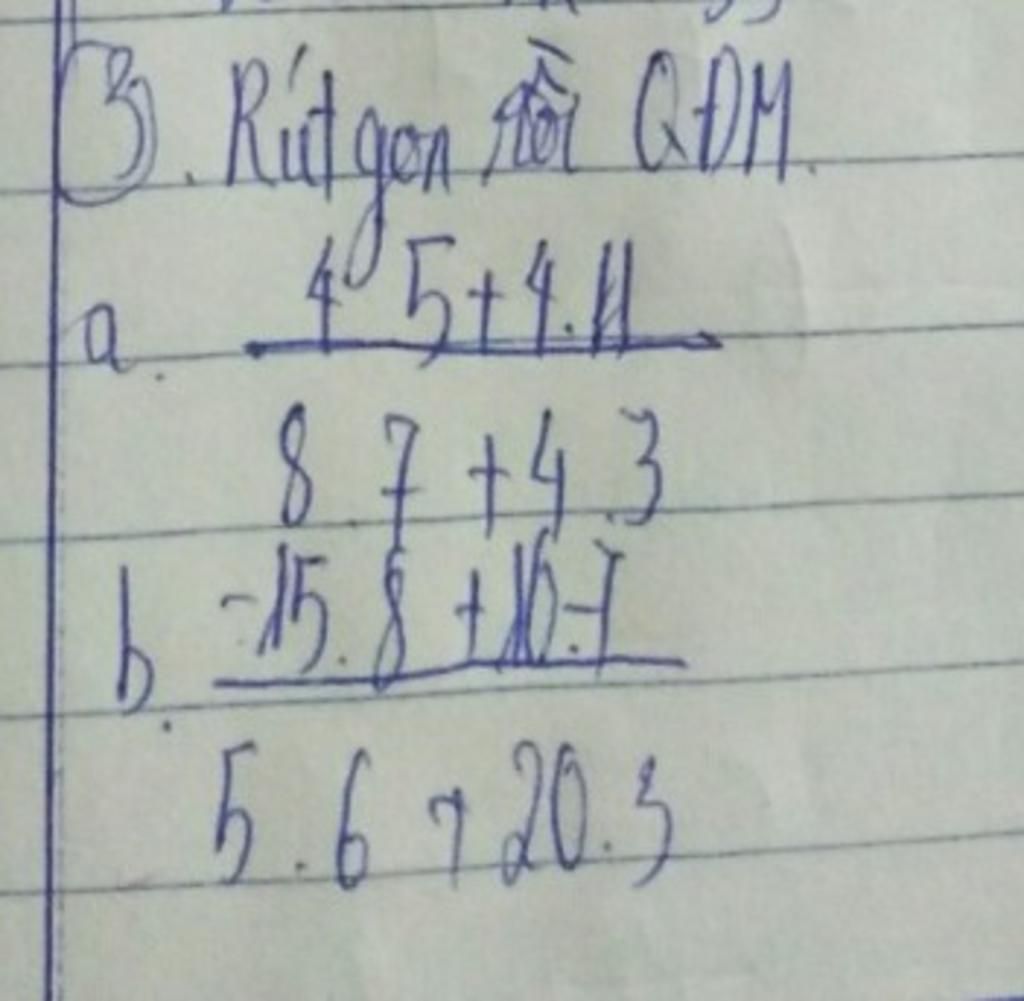 3. Rút gọn rồi QĐM.
a. 4 5 + 4.11
8.7 + 4.3
b. -15.8 + 10.7
5.6 + 20.3